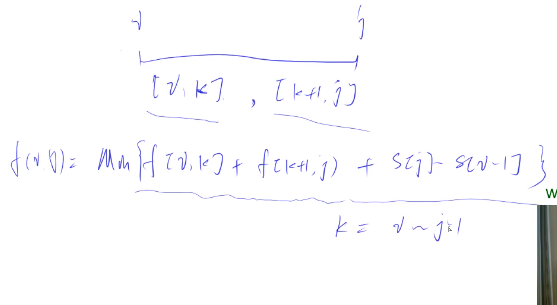 i j
[i,k] , [k+1,j]
f(i,j) = Min{f[i,k] + f[k+1,j) + S[j] - S[i-1]}
k = i ~ j-1